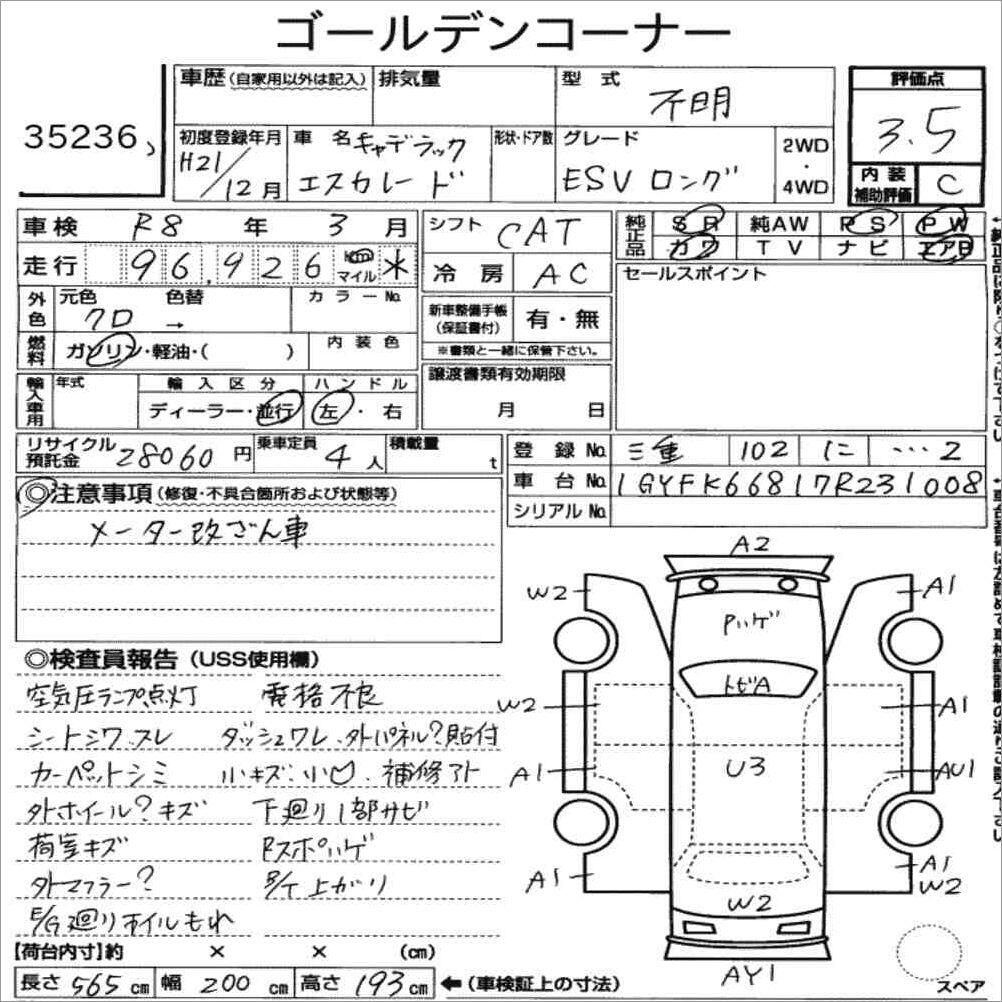 ゴールデンコーナー
35236
車歴 (自家用以外は記入) 排気量 型式 不明
評価点 3.5
初度登録年月 H21/12月 車名 キャデラック エスカレード 形状・ドア数 グレード ESV ロング 2WD・4WD
内装補助評価 C
車検 R8年 3月 シフト CAT
純正品 SR 純AW PS PW
カワ TV ナビ エアB
走行 96,926 km マイル *
冷房 AC
セールスポイント
外色 元色 クロ 色替 → カラーNo.
新車整備手帳(保証書付) 有・無
※書類と一緒に保管下さい。
燃料 ガソリン・軽油・( ) 内装色
譲渡書類有効期限 月 日
輸入車用 年式 輸入区分 ディーラー・並行 ハンドル 左・右
リサイクル預託金 28060円 乗車定員 4人 積載量 t
登録No. 三重 102 に …2
車台No. 1GYFK66817R231008
シリアルNo.
◎注意事項(修復・不具合箇所および状態等)
メーター改ざん車
◎検査員報告 (USS使用欄)
空気圧ランプ点灯 電格不良
シートシワ、スレ ダッシュワレ、外パネル?貼付
カーペットシミ 小キズ、小凹、補修アト
外ホイール?キズ 下廻り1部サビ
荷室キズ Rスポハゲ
外マフラー? B/T上がり
E/G廻りオイルもれ
【荷台内寸】約 × × (cm)
長さ 565cm 幅 200cm 高さ 193cm ←(車検証上の寸法)
A2
W2 A1
Pハゲ
トビA
W2 A1
A1 U3 AU1
A1 A1
W2
W2
AY1
スペア